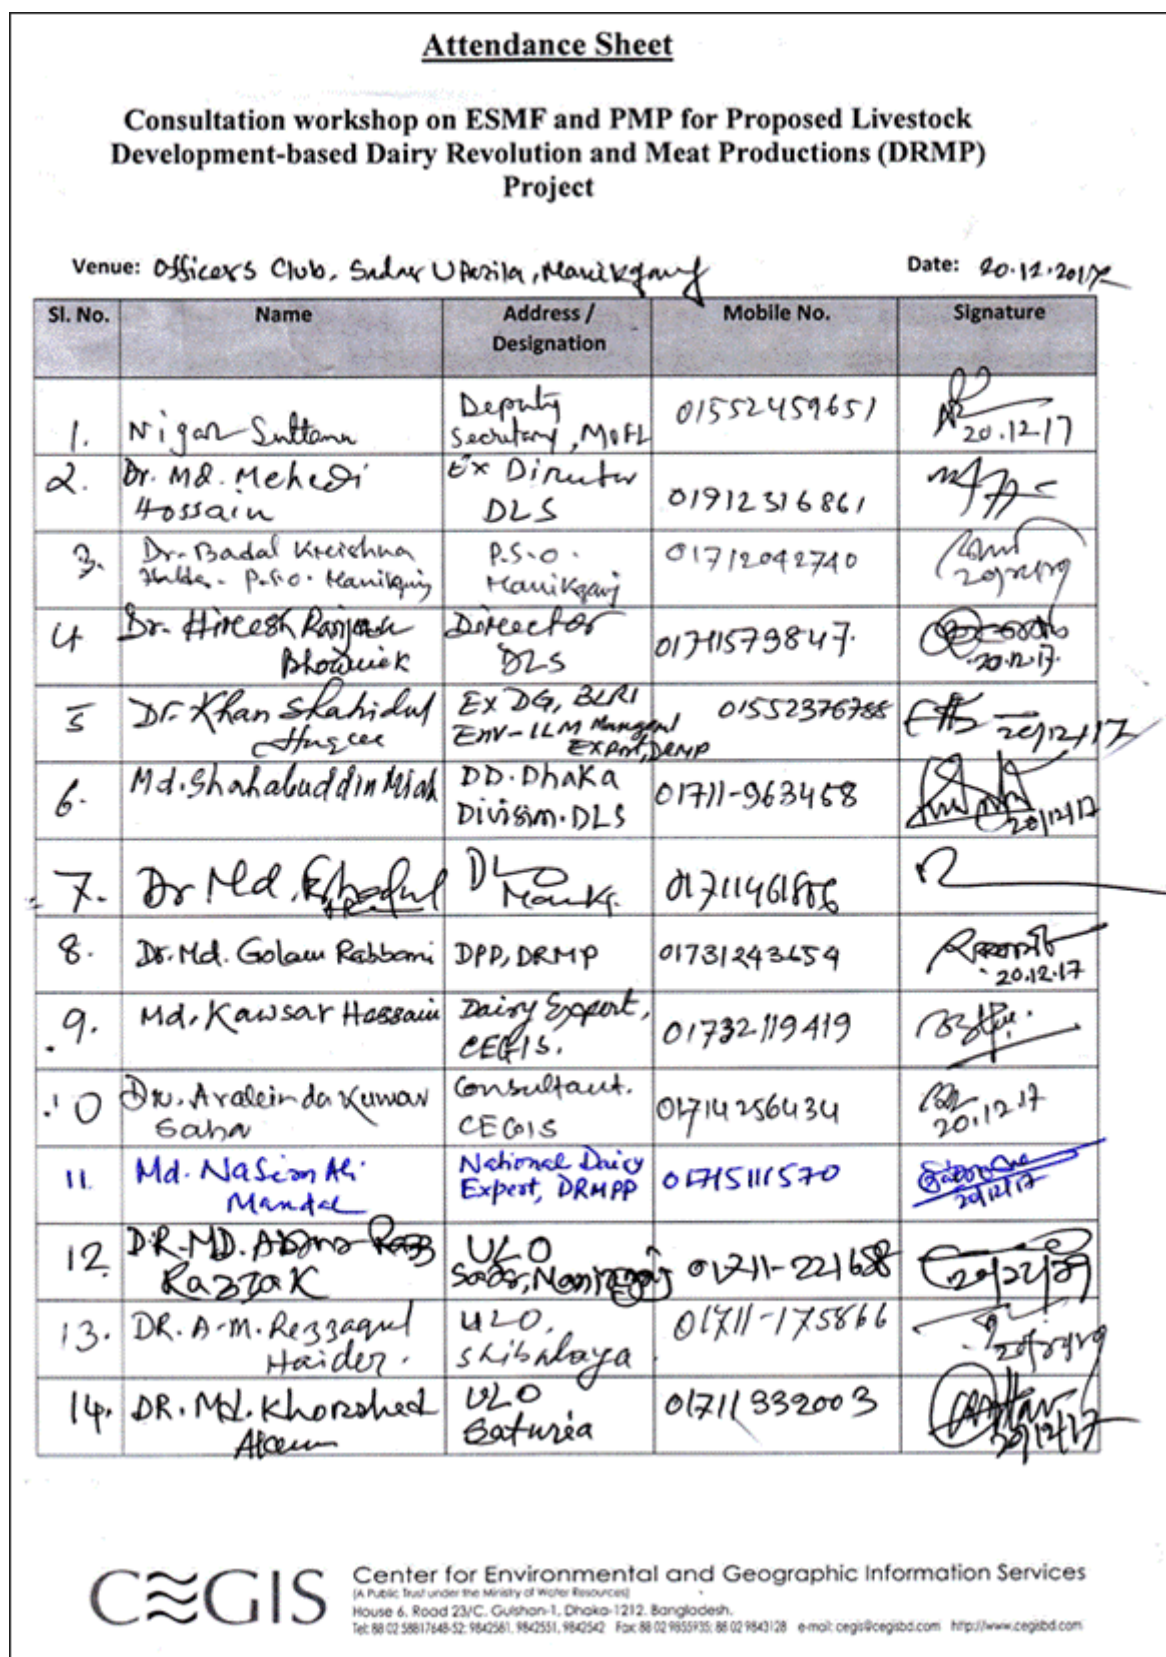 Attendance Sheet
Consultation workshop on ESMF and PMP for Proposed Livestock
Development-based Dairy Revolution and Meat Productions (DRMP)
Project
Venue: Officers Club, Sadar Upazila, Manikganj Date: 20.12.2017
Sl. No. Name Address / Designation Mobile No. Signature
1. Nigar Sultana Deputy Secretary, MoFL 01552459651 20.12.17
2. Dr. Md. Mehedi Hossain Ex Director DLS 01912316861
3. Dr. Badal Kreishna P.S.O. Manikganj P.S.O. Manikganj 01712042740
4 Dr. Hireesh Ranjan Bhowmick Director DLS 01711579847. 20.12.17.
5 Dr. Khan Shahidul Huque Ex DG, BLRI Env-ILM Managent Expert, DRMP 01552376788 20/12/17
6. Md. Shahabuddin Miah DD. Dhaka Division. DLS 01711-963468 20/12/17
7. Dr Md. DLO Manik. 01711461856
8. Dr. Md. Golam Rabbani DPD, DRMP 01731243654 20.12.17
9. Md. Kawsar Hossain Dairy Expert, CEGIS. 01732119419
10 Dr. Arabinda Kumar Saha Consultant. CEGIS 01714256434 20.12.17
11. Md. Nasim Ali Mandal National Dairy Expert, DRMPP 01715111570 20/12/17
12. DR. MD. RAZZAK ULO Sadar, Manikganj 01711-221658
13. DR. A.M. Rezzaqul Haider. ULO, Shibalaya 01711-175866
14. DR. Md. Khorshed Alam ULO Saturia 01711332003 20/12/17
CEGIS
Center for Environmental and Geographic Information Services
(A Public Trust under the Ministry of Water Resources)
House 6, Road 23/C, Gulshan-1, Dhaka-1212, Bangladesh.
Tel: 88 02 58817648-52, 9842581, 9842551, 9842542 Fax: 88 02 9855935; 88 02 9843128 e-mail: cegis@cegisbd.com http://www.cegisbd.com